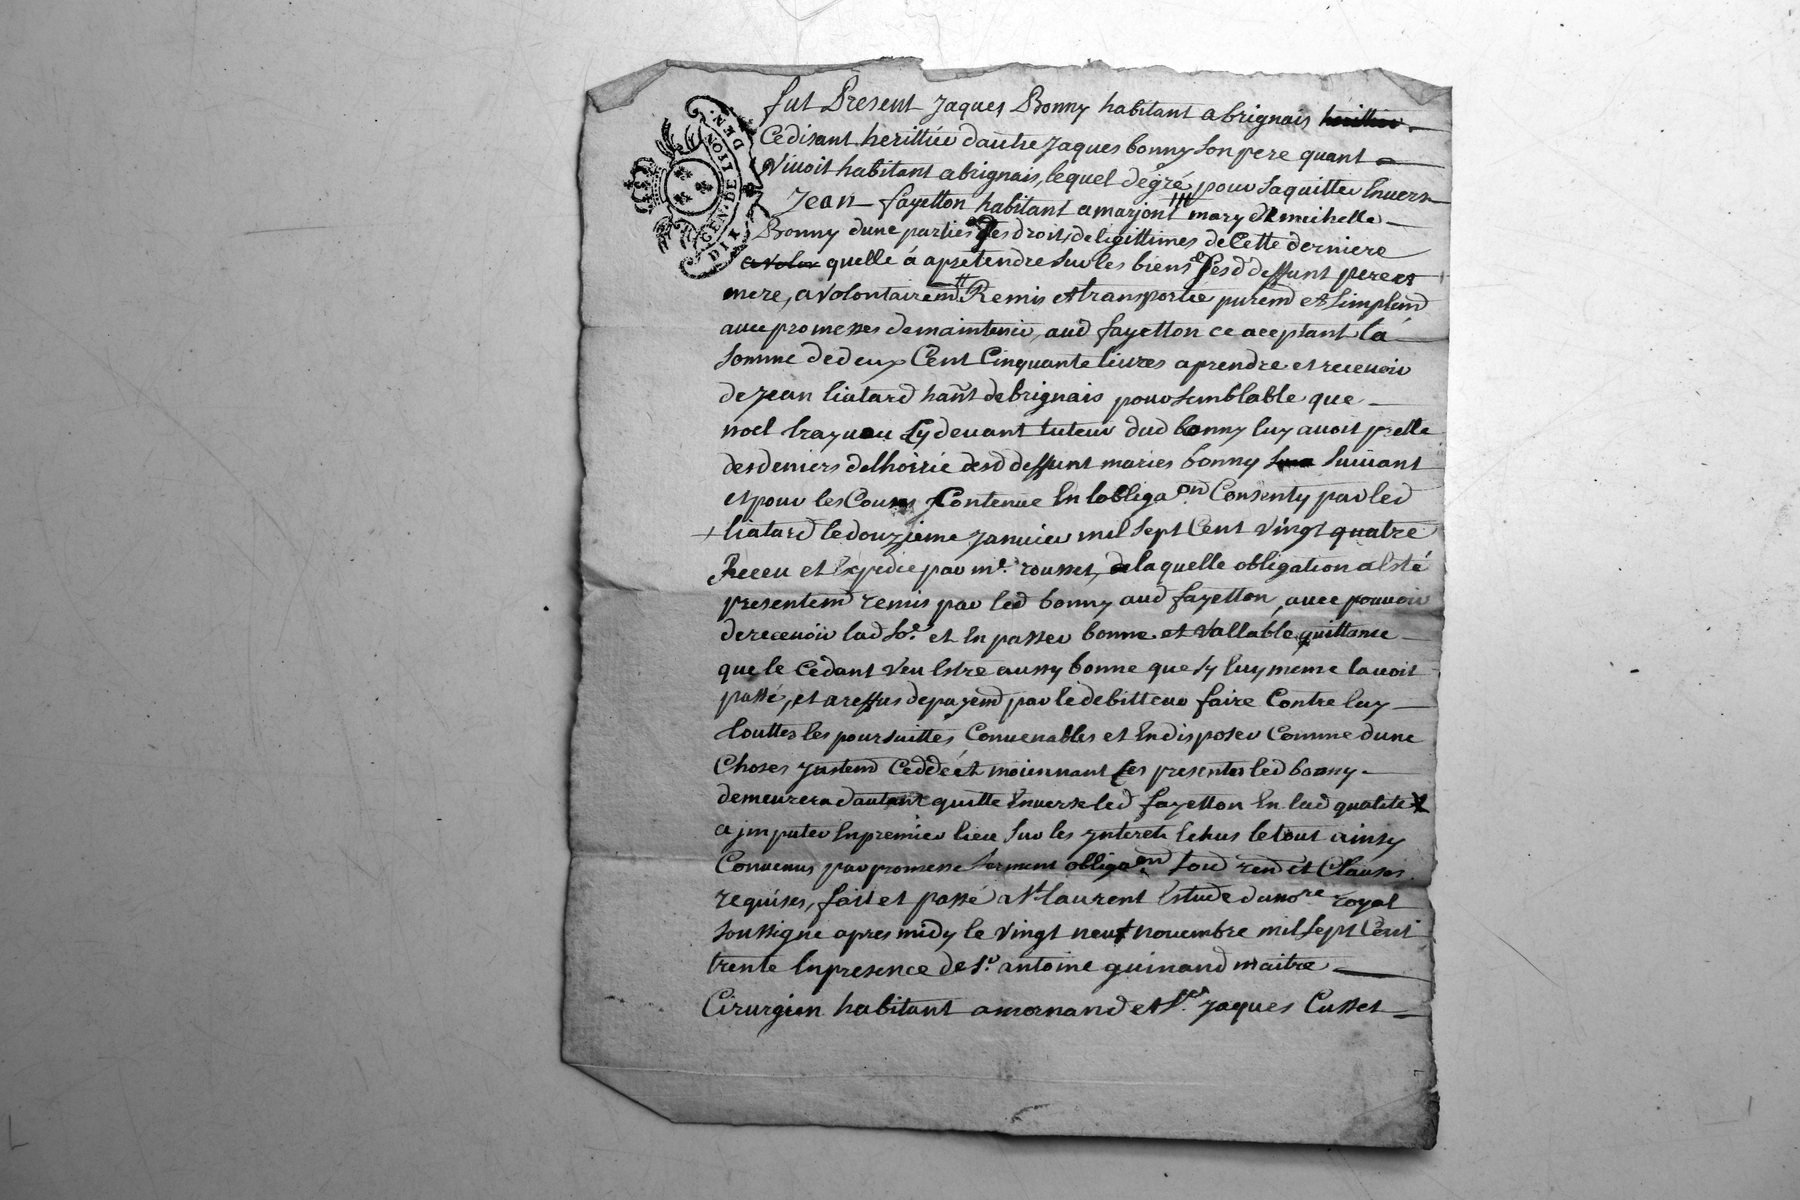 GEN. DE LION.
DIX DEN.
fut Present Jaques Bonny habitant a brignais
Cedisant herittier dautre Jaques bonny son pere quant
Vivoit habitant a brignais, lequel degré pour saquitter Envers
Jean fayetton habitant a marjont mary de michelle
Bonny dune parties des droits de legittimes de Cette derniere
quelle á a pretendre sur les biens desd deffunt pere et
mere, a volontairemt Remis et transportée puremt et simplemt
avec promesses de maintenir, aud fayetton ce aceptant lá
somme de deux Cent Cinquante livres a prendre et recevoir
de Jean liatard hant de brignais pour semblable que
noel trayvou Cy devant tuteur dud bonny luy avoit preste
des deniers de lhoirie desd deffunt maries bonny suivant
et pour les Cours Contenue En lobligaon Consenty par led
liatard le douzieme Janvier mil sept Cent vingt quatre
Receu et Expedie par me. rousset, de laquelle obligation a Esté
presentemt remis par led bonny aud fayetton avec pouvoir
de recevoir lad soe. et En passer bonne et vallable quittance
que le Cedant veu Estre aussy bonne que sy luy meme lavoit
passé, et a reffus de payemt par le debitteur faire Contre luy
touttes les poursuittes Convenables et En disposer Comme dune
Choses Justemt Ceddé et moiennant Ces presentes led bonny
demeurera dautant quitte Envers led fayetton En lad qualité
a jmputer En premier lieu sur les ynterets Echus le tout ainsy
Convenus par promesse serment obligaon. soud rend et Clauses
requises, fait et passé a St laurent Estude du nore royal
soussigne apres midy le vingt neuf novembre mil sept Cent
trente En presence de sr. antoine guinand maitre
Cirurgien habitant a mornand et sr. Jaques Cusset